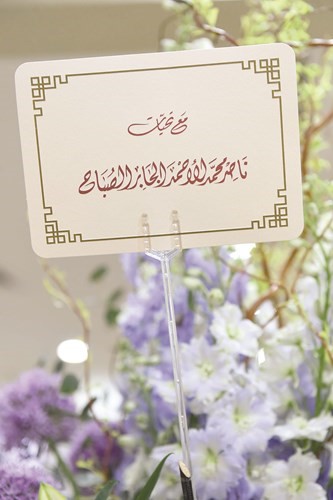 مع تحيات
ناصر محمد الأحمد الجابر الصباح